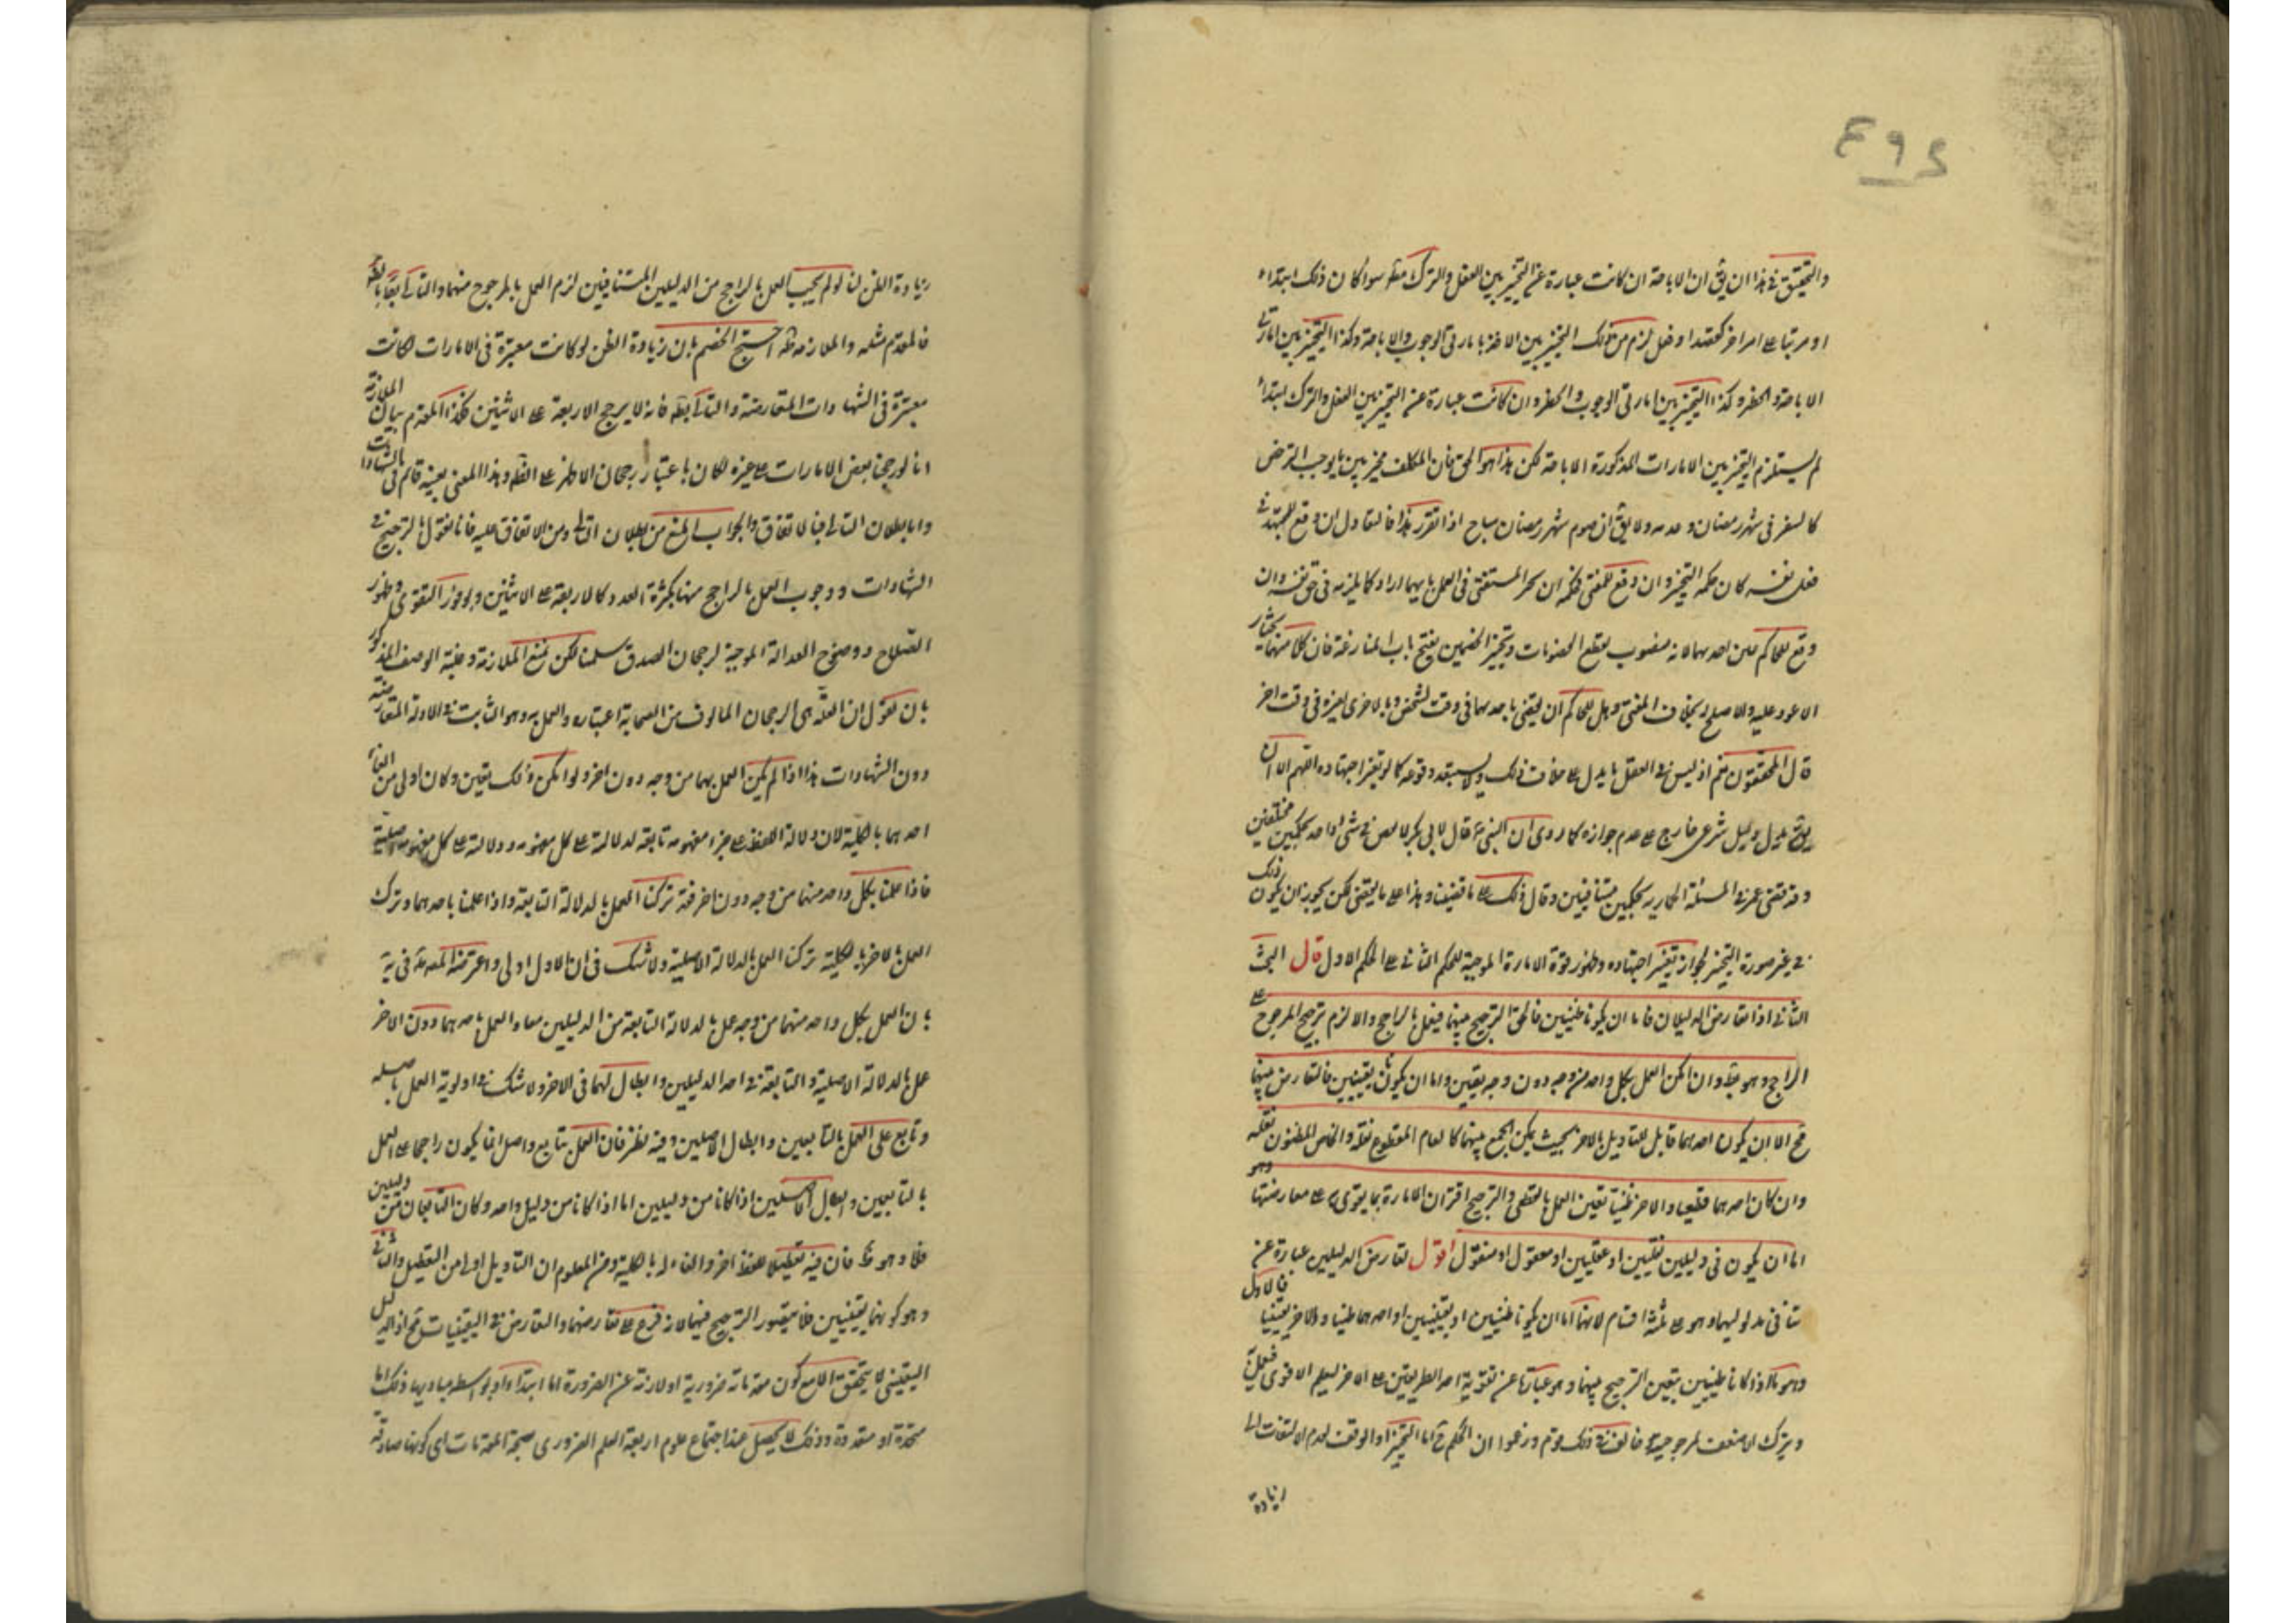 والتحقيق في هذا ان يق ان الاباحة ان كانت عبارة عن التخيير بين الفعل والترك مط سواء كان ذلك ابتداء
او مرتبا على امر اخر كعقد او فعل لزم من ذلك التخيير بين الاخذ بامارتي الوجوب والاباحة وكذا التخيير بين امارتي
الاباحة والحظر وكذا التخيير بين امارتي الوجوب والحظر وان كانت عبارة عن التخيير بين الفعل والترك ابتداء
لم يستلزم التخيير بين الامارات المذكورة الاباحة لكن هذا هو الحق فان المكلف مخير بين ما يوجب الترخص
كالسفر في شهر رمضان وعدمه ولا يق ان صوم شهر رمضان مباح اذا تقرر هذا فالتعادل ان وقع للمجتهد في
فعل نفسه كان حكمه التخيير وان وقع للمفتي فحكمه ان يخير المستفتي في العمل بايهما اراد كما يلزمه في حق نفسه وان
وقع للحاكم عين احدهما لانه منصوب لقطع الخصومات وتخيير الخصمين يفتح باب المنازعة فان كلا منهما يختار
الاعود عليه والاصلح بخلاف المفتي وهل للحاكم ان يقضي باحدهما في وقت لشخص وبالاخرى لغيره في وقت اخر
قال المحققون نعم اذ ليس في العقل ما يدل على خلاف ذلك ولا يستبعد وقوعه كما لو تغير اجتهاده اللهم الا ان
يق يدل دليل شرعي خارج على عدم جوازه كما روى ان النبي ص قال لابي بكر لا يقض في شيء واحد بحكمين مختلفين
وقد قضى عمر في المسئلة الحمارية بحكمين متنافيين وقال ذلك على ما قضينا وهذا على ما يقضى لكن يجوز ان يكون ذلك
في غير صورة التخيير لجواز تغير اجتهاده وظهور قوة الامارة الموجبة للحكم الثاني على الحكم الاول قال البحث
الثاني اذا تعارض الدليلان فاما ان يكونا ظنيين فالحق الترجيح بينهما فيعمل بالراجح والا لزم ترجيح المرجوح على
الراجح وهو بط وان امكن العمل بكل واحد من وجه دون وجه تعين واما ان يكونا يقينيين فالتعارض بينهما
مح الا ان يكون احدهما قابل للتاويل بالاخر بحيث يمكن الجمع بينهما كالعام المقطوع نقله والخاص المظنون نقله
وان كان احدهما قطعيا والاخر ظنيا تعين العمل بالقطعي والترجيح اقتران الامارة بما يقوى به على معارضتها وهو
اما ان يكون في دليلين نقليين او عقليين او معقول او منقول اقول تعارض الدليلين عبارة عن
تنافي مدلوليهما وهو على ثلثة اقسام لانهما اما ان يكونا ظنيين او يقينيين او احدهما ظنيا والاخر يقينيا فالاول
وهو ما اذا كانا ظنيين يتعين الترجيح بينهما وهو عبارة عن تقوية احد الطريقين على الاخر ليعلم الاقوى فيعمل به
ويترك الاضعف لمرجوحيته خالف في ذلك قوم وزعموا ان الحكم ح اما التخيير او الوقف لعدم الالتفات الى
زيادة
زيادة الظن لنا لو لم يجب العمل بالراجح من الدليلين المتنافيين لزم العمل بالمرجوح منهما والتالي بط
فالمقدم مثله والملازمة ظه احتج الخصم بان زيادة الظن لو كانت معتبرة في الامارات لكانت
معتبرة في الشهادات المتعارضة والتالي بط فانه لا يرجح الاربعة على الاثنين فكذا المقدم بيان الملازمة
انا لو رجحنا بعض الامارات على غيره لكان باعتبار رجحان الاظهر على الظه وهذا المعنى بعينه قائم في الشهادات
واما بطلان التالي فبالاتفاق والجواب المنع من بطلان التالي ومن الاتفاق عليه فانا نقول بالترجيح في
الشهادات ووجوب العمل بالراجح منها بكثرة العدد كالاربعة على الاثنين وبوفور التقوى وظهور
الصلاح ووضوح العدالة الموجبة لرجحان الصدق سلمنا لكن نمنع الملازمة وعلية الوصف المذكور
بان نقول ان العلة هي الرجحان المالوف من الصحابة اعتباره والعمل به وهو الثابت في الادلة المتعارضة
دون الشهادات هذا اذا لم يمكن العمل بهما من وجه دون اخر ولو امكن ذلك تعين وكان اولى من الغاء
احدهما بالكلية لان دلالة اللفظ على جزء مفهومه تابعة لدلالته على كل مفهومه ودلالته على كل مفهومه اصلية
فاذا عملنا بكل واحد منهما من وجه دون اخر فقد تركنا العمل بالدلالة التابعة واذا عملنا باحدهما وترك
العمل بالاخر بالكلية تركنا العمل بالدلالة الاصلية ولا شك في ان الاول اولى واعترضه المص في يه
بان العمل بكل واحد منهما من وجه عمل بالدلالة التابعة من الدليلين معا والعمل باحدهما دون الاخر
عمل بالدلالة الاصلية والتابعة في احد الدليلين وابطال لهما في الاخر ولا شك في اولوية العمل باصله
وتابع على العمل بالتابعين وابطال الاصلين وفيه نظر فان العمل بتابع واصل انما يكون راجحا على العمل
بالتابعين وابطال الاصلين اذا كانا من دليلين اما اذا كانا من دليل واحد وكان التابعان من دليلين
فلا وهو ظ فان فيه تعطيلا للفظ اخر والغاء له بالكلية ومن المعلوم ان التاويل اولى من التعطيل والثاني
وهو كونهما يقينيين فلا يتصور الترجيح فيهما لانه فرع على تعارضهما والتعارض في اليقينيات مح اذ الدليل
اليقيني لا يتحقق الا مع كون مقدماته ضرورية او لازمة عن الضرورة اما ابتداء او بواسطة مباديها وذلك اما
متحدة او متعددة وذلك لا يحصل عند اجتماع علوم اربعة العلم الضروري بصحة المقدمات اي كونها صادقة